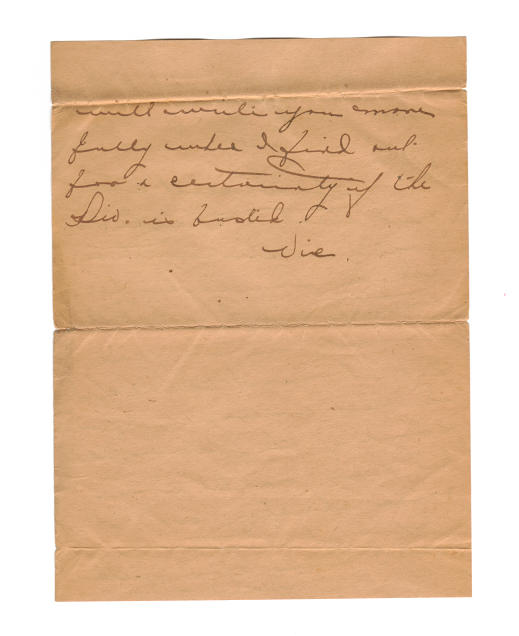 will write you more
fully when I find out
for a certainty if the
Div. is busted.
Vic.